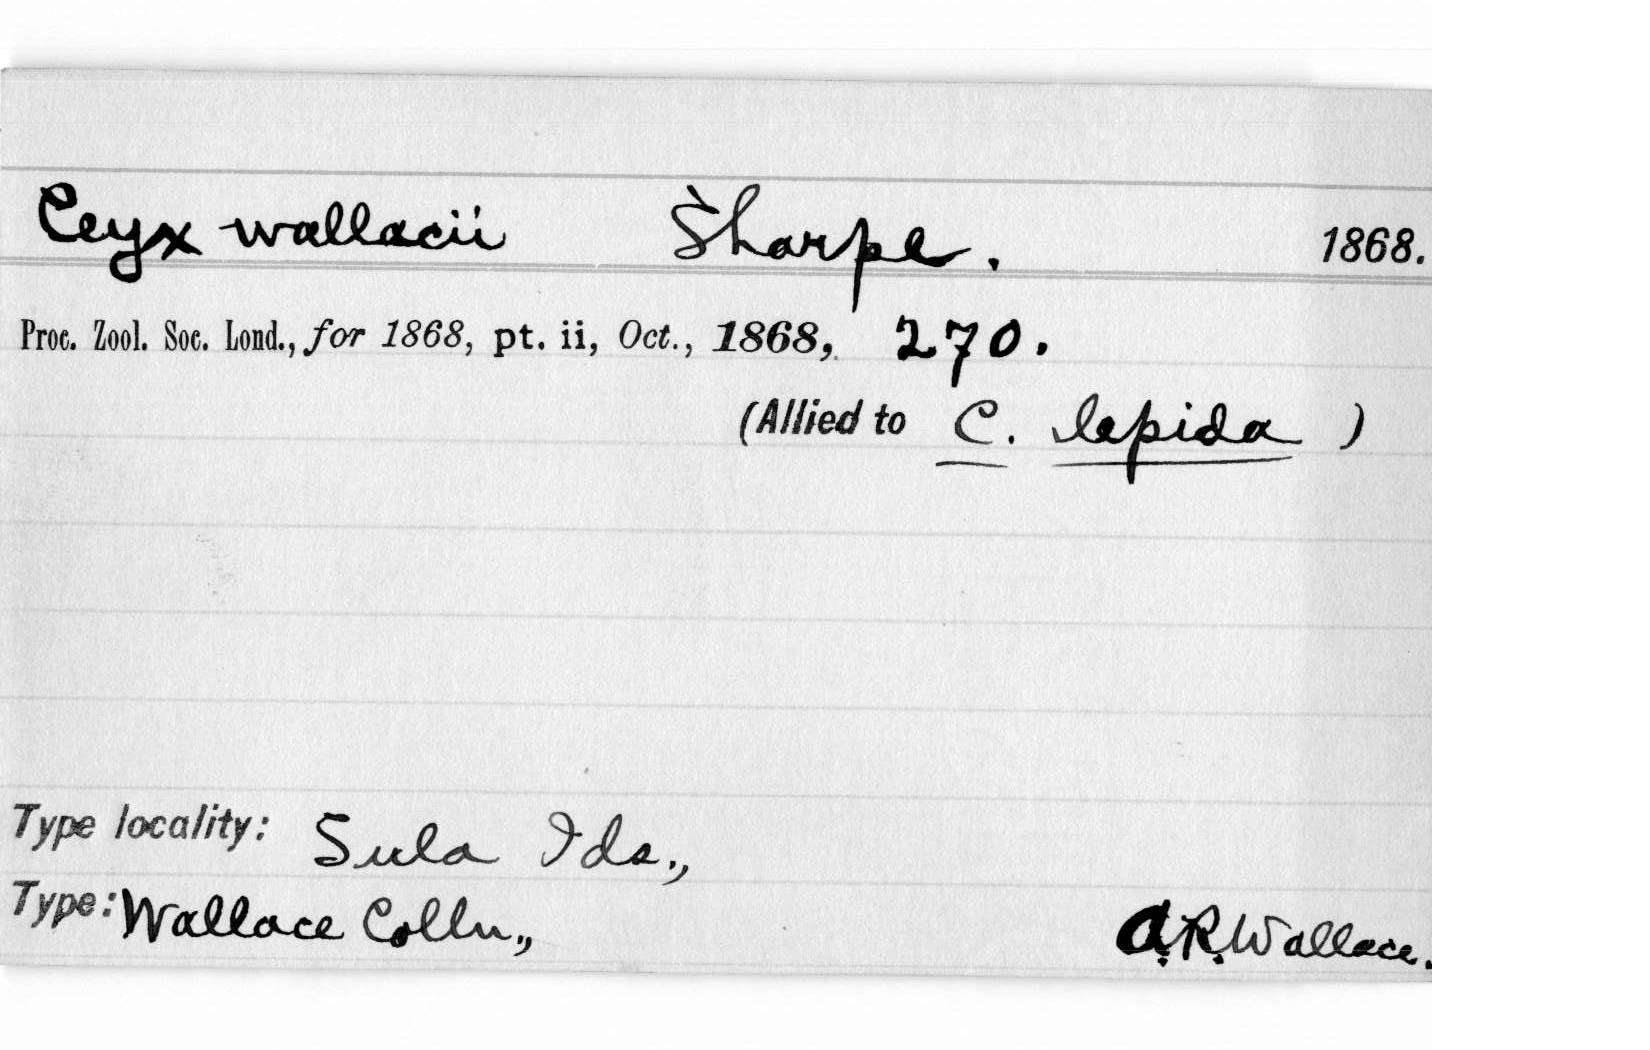 Ceyx wallacii Sharpe. 1868.
Proc. Zool. Soc. Lond., for 1868, pt. ii, Oct., 1868, 270.
(Allied to C. lepida )
Type locality: Sula Ids.,
Type: Wallace Colln., A.R.Wallace.